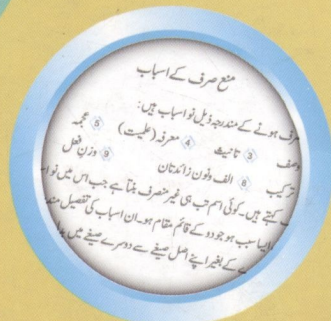 منع صرف کے اسباب
صرف ہونے کے مندرجہ ذیل نو اسباب ہیں:
وصف 3 تانیث 4 معرفہ (علمیت) 5 عجمہ
ترکیب 8 الف ونون زائدتان 9 وزنِ فعل
کہتے ہیں۔ کوئی اسم تب ہی غیر منصرف بنتا ہے جب اس میں نو
ایسا سبب ہو جو دو کے قائم مقام ہو۔ ان اسباب کی تفصیل
کے بغیر اپنے اصل صیغے سے دوسرے صیغے میں